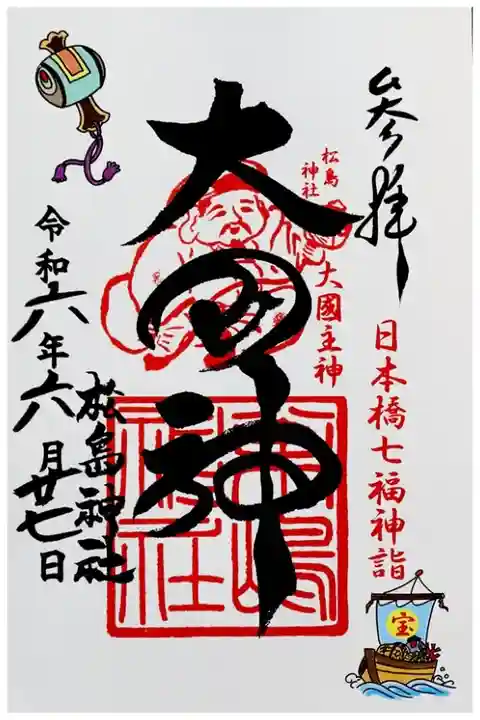 参拝
日本橋七福神詣
松島
神社
大國主神
大国神
松島神社
令和六年六月廿七日
宝